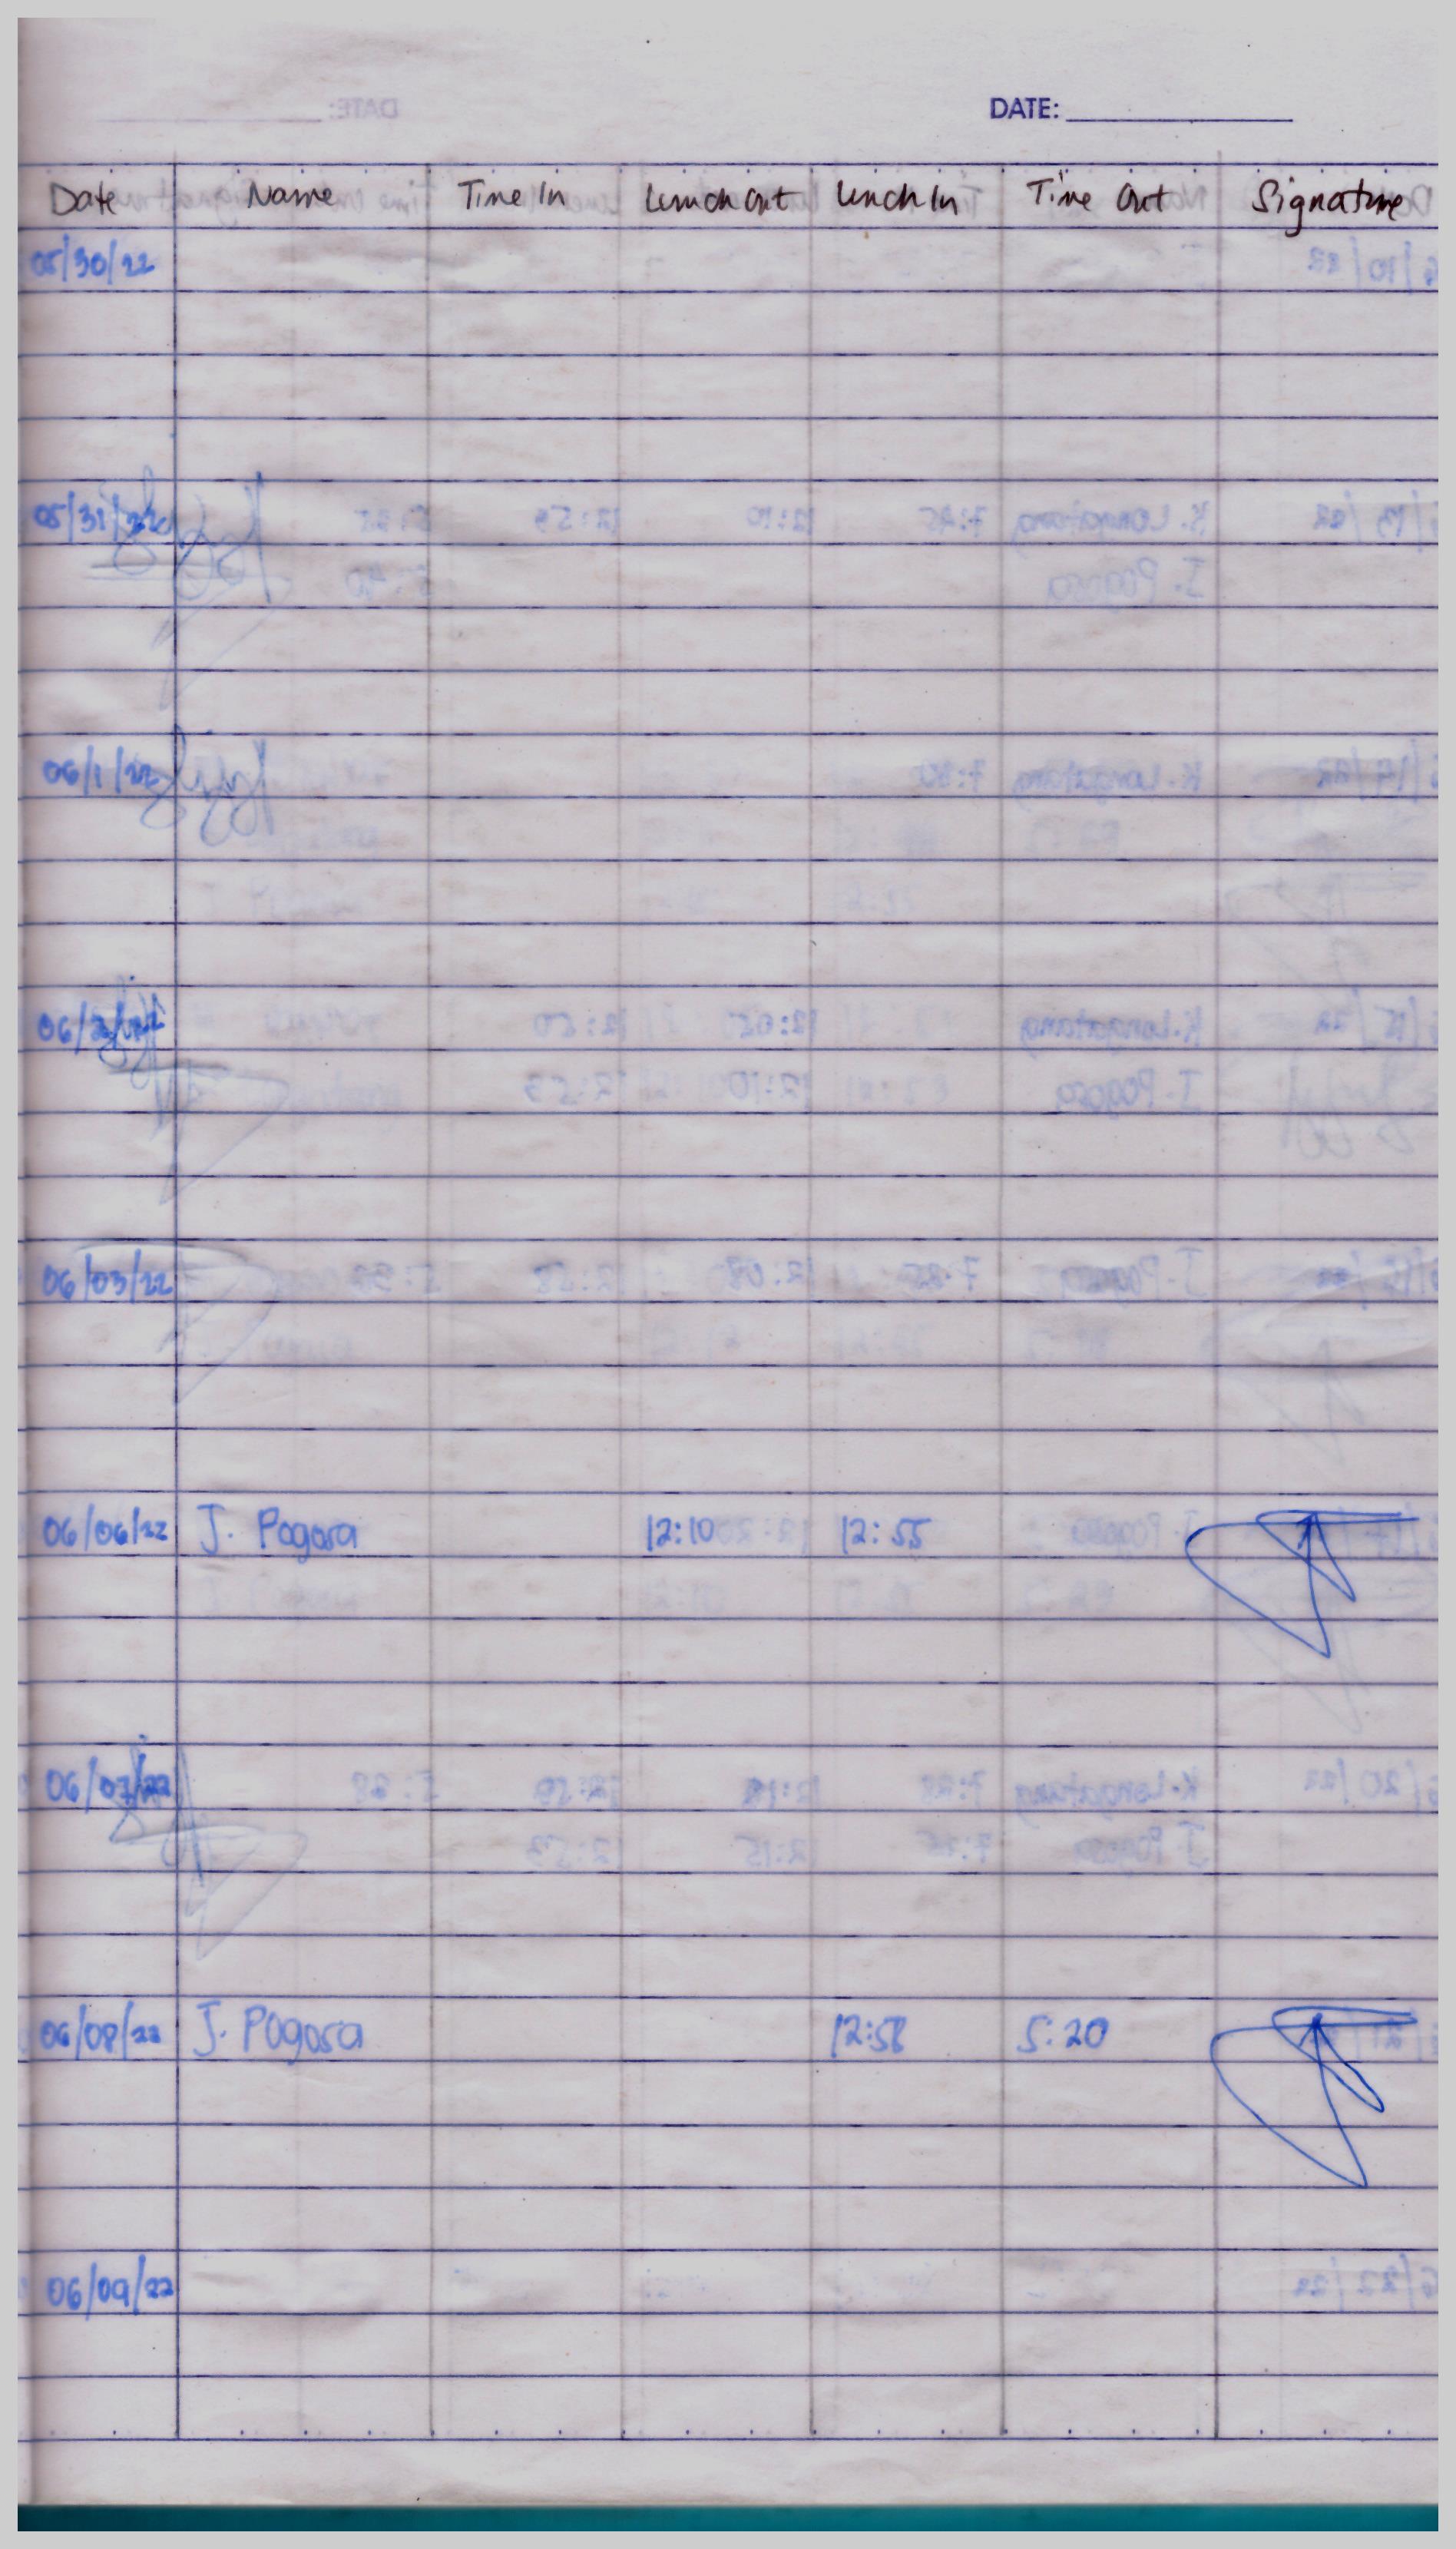 DATE:
Date Name Time In Lunch Out Lunch In Time Out Signature
05/30/22
05/31/22
06/1/22
06/2/22
06/03/22
06/06/22 J. Pogosa 12:10 12:55
06/07/22
06/08/22 J. Pogosa 12:58 5:20
06/09/22